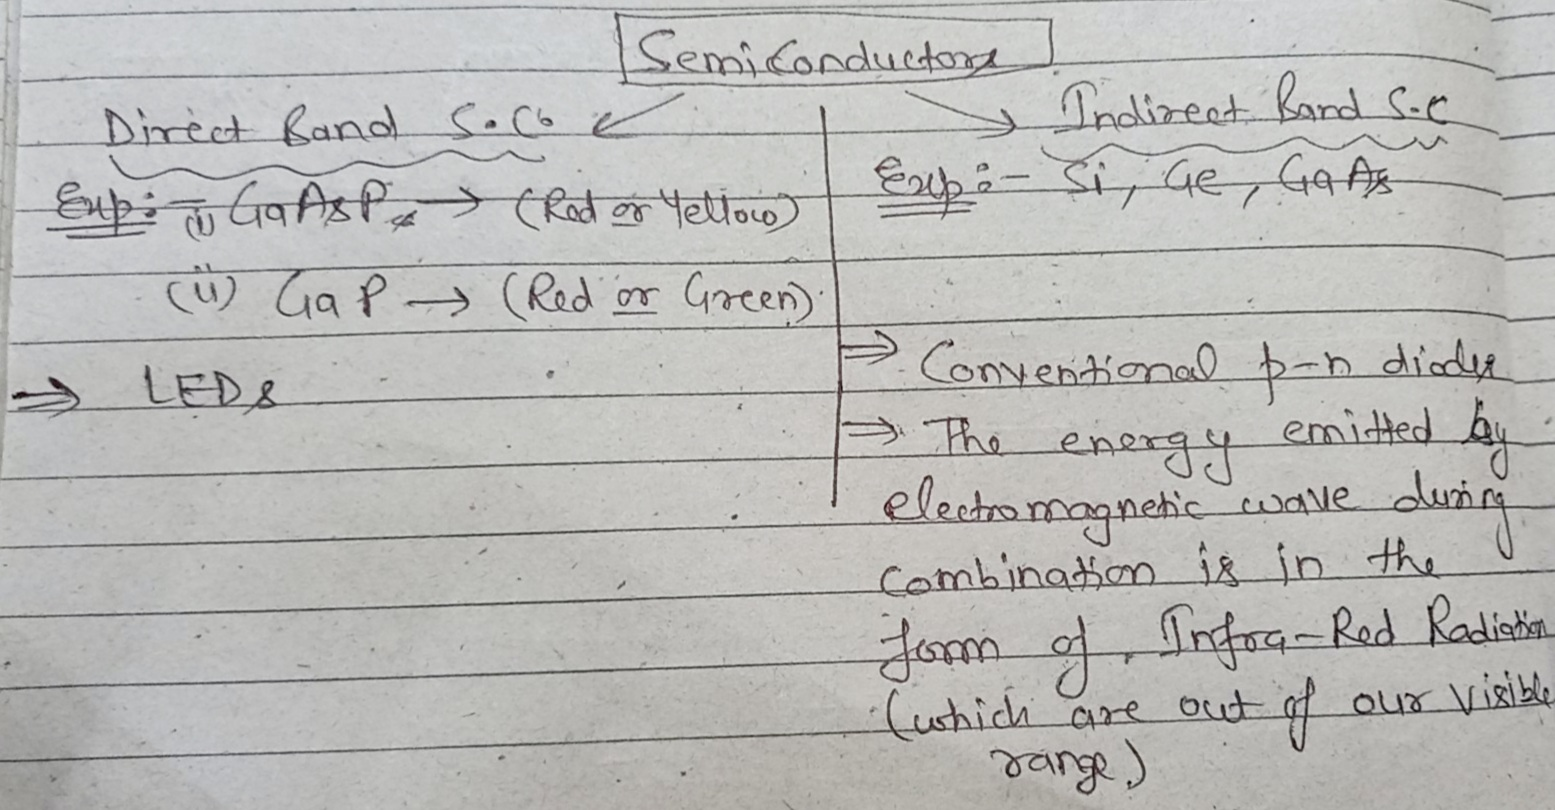 Semiconductors
Direct Band S.C.
Exp:- (i) GaAsP → (Red or Yellow)
(ii) GaP → (Red or Green).
⇒ LEDs
Indirect Band S.C
Exp:- Si, Ge, GaAs
⇒ Conventional p-n diodes
⇒ The energy emitted by
electromagnetic wave during
combination is in the
form of Infra-Red Radiation
(which are out of our visible
range.)